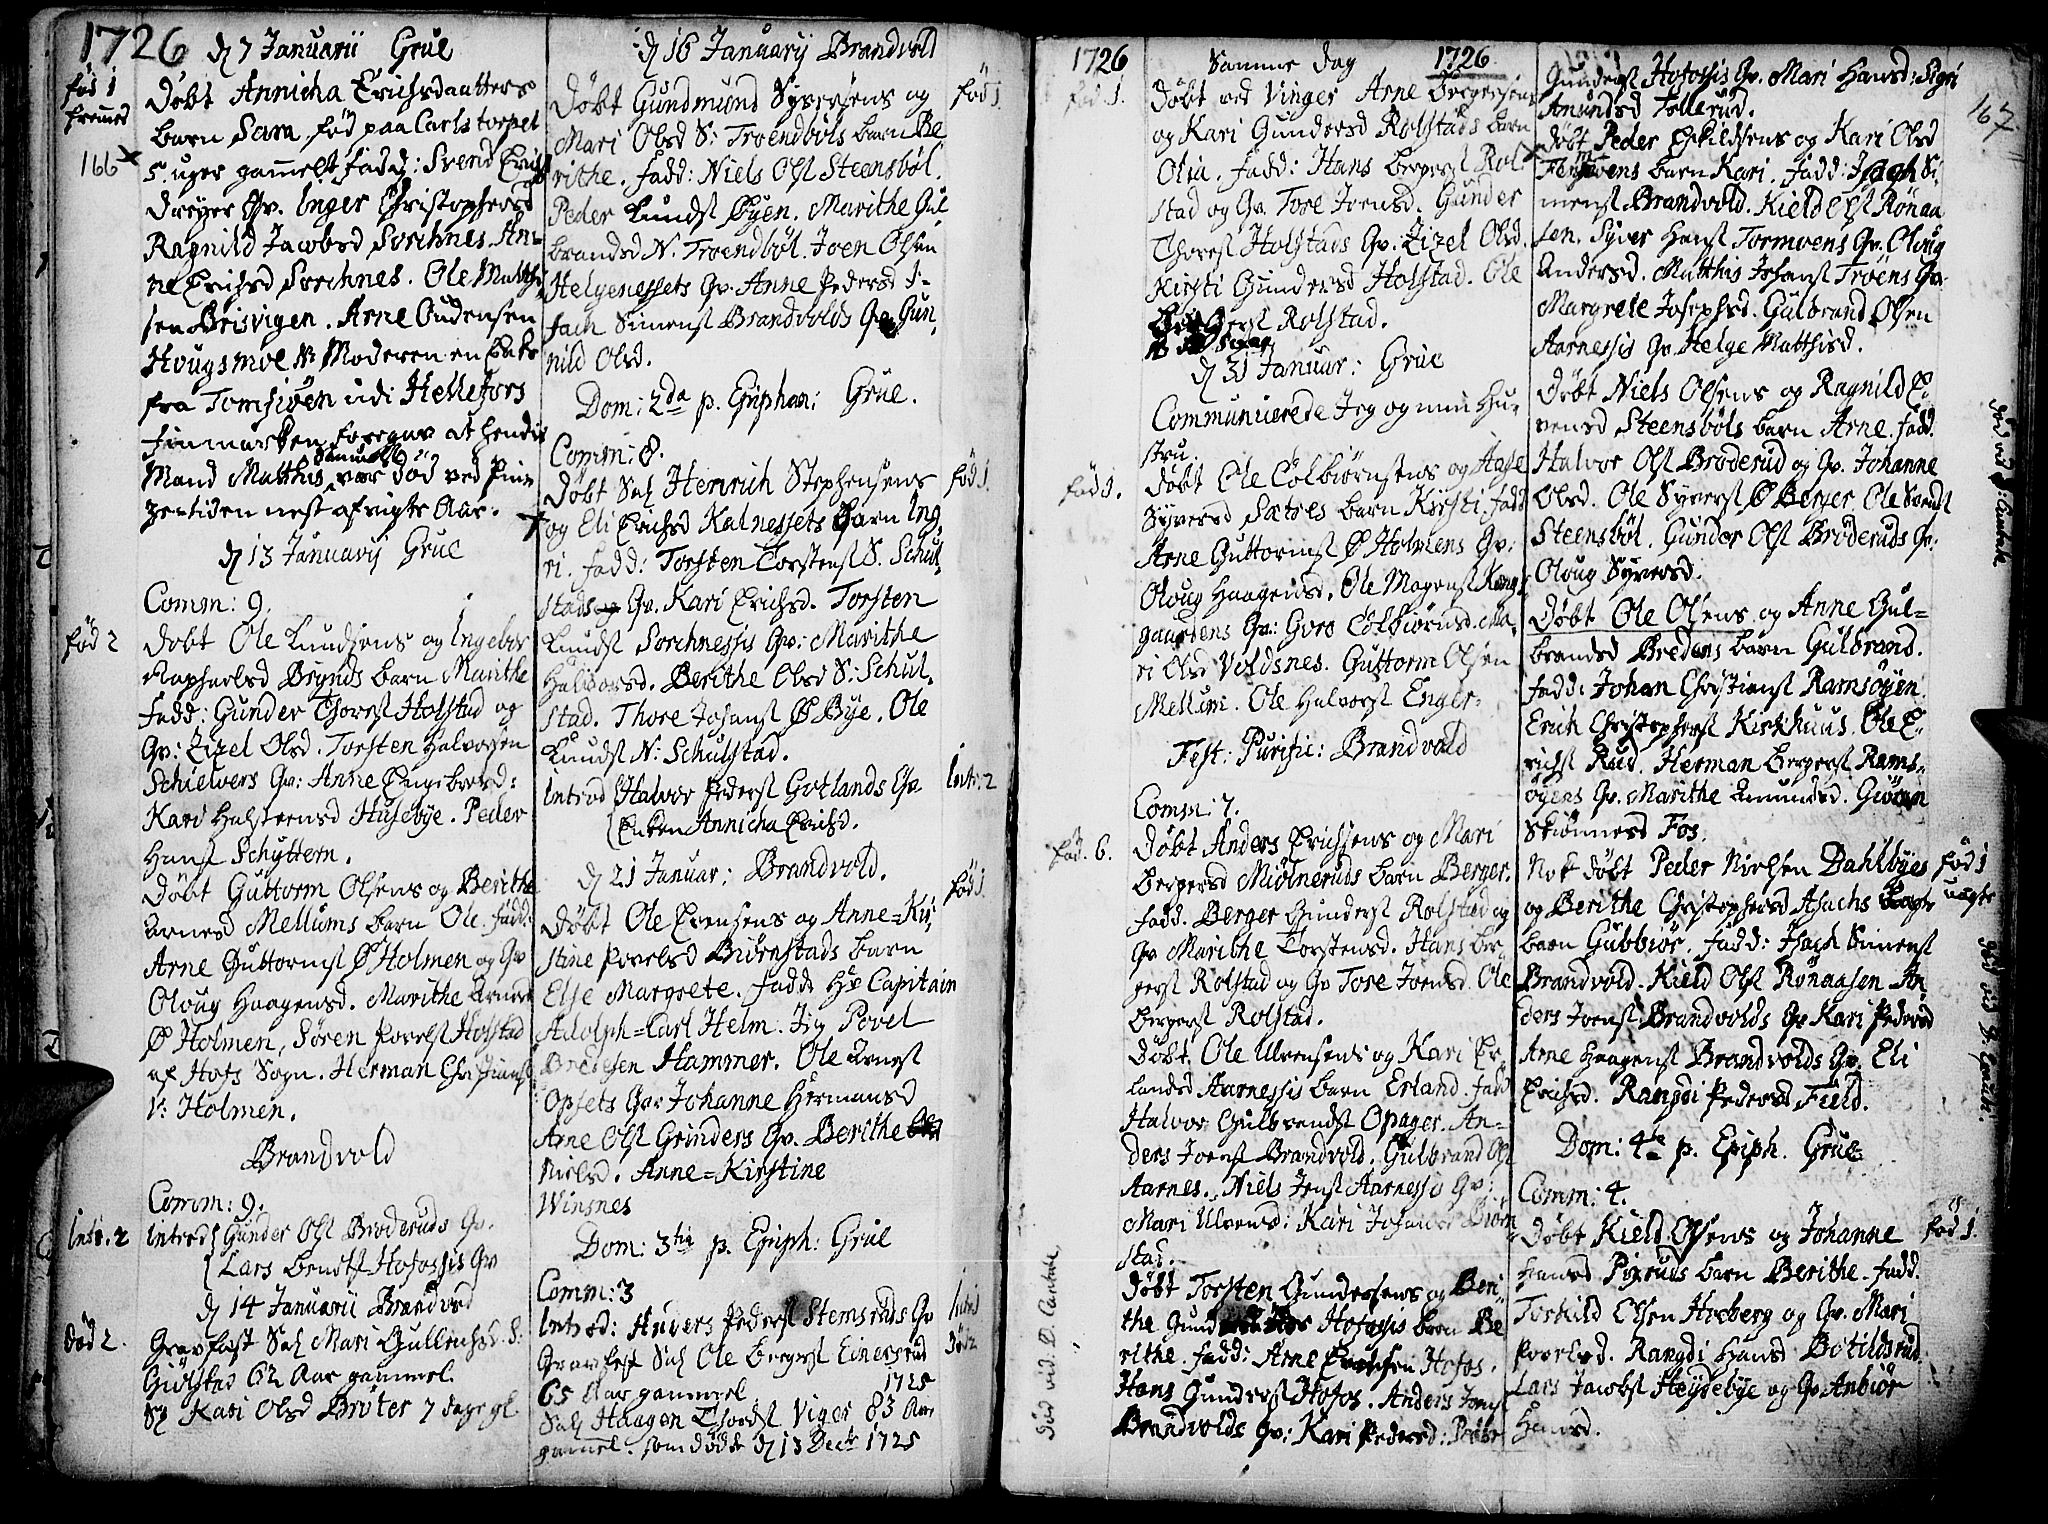 1726
d 7 Januarii Grue
fød 1
fremed
Døbt Annicha Erichsdaatters
barn Sara, fød paa Carlstorpet
166
5 uger gammelt fadd: Svend Erichs
Dreyer Qv. Inger Christophersd
Ragnild Jacobsd Sorchnes. An-
ne Erichsd Sorchnes. Ole Matthi
sen Brisvigen. Arne Oudensen
Hougsmoe N: Moderen en Enke
fra Tomsiøen udi Hellefors
Finmarken foregav at hendis
Mand Matthis Samuels var død ved Pin
zetiden nest afvigte Aar.
d 13 Januarij Grue
Comm: 9.
fød 2
Døbt Ole Knudsens og Ingebor
Raphaelsd Brynds barn Marithe
fadd: Gunder Thorest Holstad og
Qv: Zizel Olsd. Torsten Halvorsen
Schielvers Qv: Anne Engebretsd:
Kari Halsteensd Husebye. Peder
Hanst Schyttern.
Døbt Guttorm Olsens og Berithe
Arnesd Mellums barn Ole. fadd.
Arne Guttormst Ø Holmen og Qv
Oloug Haagensd. Marithe Arnesd
Ø Holmen, Søren Povelst Holstad
af Hofs Sogn. Herman Christianst
V: Holmen.
Brandvold
Comm: 9.
Intr. 2
Introd Gunder Olst Broderuds Qv.
Lars Bendtst Hofossis Qv
d 14 Januarii Brandvold
Død 2.
Gravfæst Sal Mari Gullichsd S:
Giølstad 62 Aar gammel.
Sl Kari Olsd Brøter 7 dage gl
d 16 Januarij Brandvold
fød 1.
Døbt Gundmund Syversens og
Mari Olsd S: Troendbøls barn Be
rithe. fadd: Niels Olst Steensbøl.
Peder Lundst Øyen. Marithe Gul
brandsd N. Troendbøl. Joen Olsen
Helgenessets Qv. Anne Pedersd I-
sach Simenst Brandvolds Qv Gun,
nild Olsd.
Dom: 2da p. Epiphan: Grue.
Comm: 8.
fød 1.
Døbt Sal Henrich Stephensens
og Eli Erichsd Kalnessets Barn Ing,
ri. fadd: Torsten Torstenst S. Schul,
stads Qv. Kari Erichsd. Torsten
Knudst Sorchnessis Qv: Marithe
Halvorsd. Berithe Olsd S: Schul,
stad. Thore Johanst Ø Bye. Ole
Knudst N: Schulstad.
Intr: 2
Introd Halvor Pederst Gotlands Qv.
Enken Annicha Erichsd.
d 21 Januar: Brandvold.
fød 1.
Døbt Ole Evensens og Anne=Kir,
stine Povelsd Biørnstads barn
Else Margrete. fadd: Hr Capitain
Adolph=Carl Helm. Jtg Povel
Bredesen Hammer. Ole Arnest
Opsets Qv: Johanne Hermansd
Arne Olst Grinders Qv. Berithe
Nielsd. Anne=Kirstine
Winsnes
Dom: 3tia p. Epiph: Grue
Comm: 3
Intr 1
Introd: Anders Pederst Stemsruds Qv
Død 2
Gravfest Sal Ole Bergerst Einersrud
65 Aar gammel 1725
Sal Haagen Thordst Viger 83 Aar
gammel. som døde d 13 Decbr 1725
1726
Samme dag
1726
fød. 1.
Døbt ved Vinger Arne Bergersens
og Kari Gundersd Rolstads barn
Olia. fadd: Hans Bergerst Rol
stad og Qv Tore Joensd. Gunder
Thorest Holstads Qv. Zizel Olsd.
Kirsti Gundersd Holstad. Ole
Bergerst Rolstad.
d 31 Januar: Grue
Communicerede Jeg og min Hu-
stru.
fød 1.
Døbt Ole Colbiørnsens og Aase
Syversd Sætres barn Kirsti. fadd
Arne Guttormst Ø Holmens Qv:
Oloug Haagensd. Ole Mogenst Kong,
gaardens Qv: Goro Colbiørnsd. Ma,
ri Olsd Voldsnes. Guttorm Olsen
Mellum. Ole Halvorst Enger.
Fest: Purific: Brandvold
Comm: 7.
fød. 6.
Døbt Anders Erichsens og Mari
Bergersd Miølneruds barn Berger.
fadd. Berger Gunderst Rolstad og
Qv Marithe Torstensd. Hans Ber
gerst Rolstad og Qv Tore Joensd. Ole
Bergerst Rolstad.
Døbt, Ole Ulvensens og Kari Er
landsd Aarnessis barn Erland. fadd
Halvor Gulbrandst Opager. An-
ders Joenst Brandvold. Gulbrand Olst
Aarnes. Niels Jenst Aarnessis Qv:
Mari Ulvensd: Kari Johansd Biørn
stad.
Døbt Torsten Gundersens og Beri-
the Hofossis barn Be
rithe. fadd: Arne Hofos.
Hans Gunderst Hofos. Anders Joenst
Brandvolds Qv: Kari Pedersd.
Død vid. D. Cantate
Gunderst Hofossis Qv. Mari Hansd: Sigri
Amundsd Tollerud.
167.
Døbt Peder Eskildsens og Kari Olsd
barn Kari. fadd: Isach Si
menst Brandvold. Kield Olst Rønaa
sen. Syver Hanst Tormoens Qv. Oloug
Andersd. Matthis Johanst Trøens Qv.
Margrete Josephsd. Gulbrand Olsen
Aarnessis Qv Helge Matthisd.
Døbt Niels Olsens og Ragnild E,
vensd Steensbøls barn Arne. fadd.
Halvor Olst Brøderud og Qv. Johanne
Olsd. Ole Syverst Ø Berger. Ole Svendst
Steensbøl. Gunder Olst Brøderuds Qv:
Oloug Syversd.
Døbt Ole Olsens og Anne Gul-
brandsd Bredens barn Gulbrand.
fadd: Johan Christianst Ramsøyen.
Erich Christopherst Kirkhuus. Ole E,
richst Rud. Herman Bergerst Rams,
øyens Qv. Marithe Amundsd. Giøran
Skiønnesd Fos.
fød 1
uægte
Nok døbt Peder Nielsen Dahlbyes
og Berithe Christophersd Asachs uægte
barn Gubbiør. fadd: Isach Simenst
Brandvold. Kield Olst Rønaasen. An,
ders Joenst Brandvolds Qv Kari Pedersd
Arne Haagenst Brandvolds Qv. Eli
Erichsd. Rangdi Pedersd Field.
Dom: 4ta p. Epiph. Grue
Comm: 4.
fød 1.
Døbt Kield Olsens og Johanne
Hansd Pixruds barn Berithe. fadd.
Torkild Olsen Hoeberg og Qv. Mari
Povelsd. Rangdi Hansd Botildsrud.
Lars Jacobst Heysebye og Qv Anbiør
Hansd.